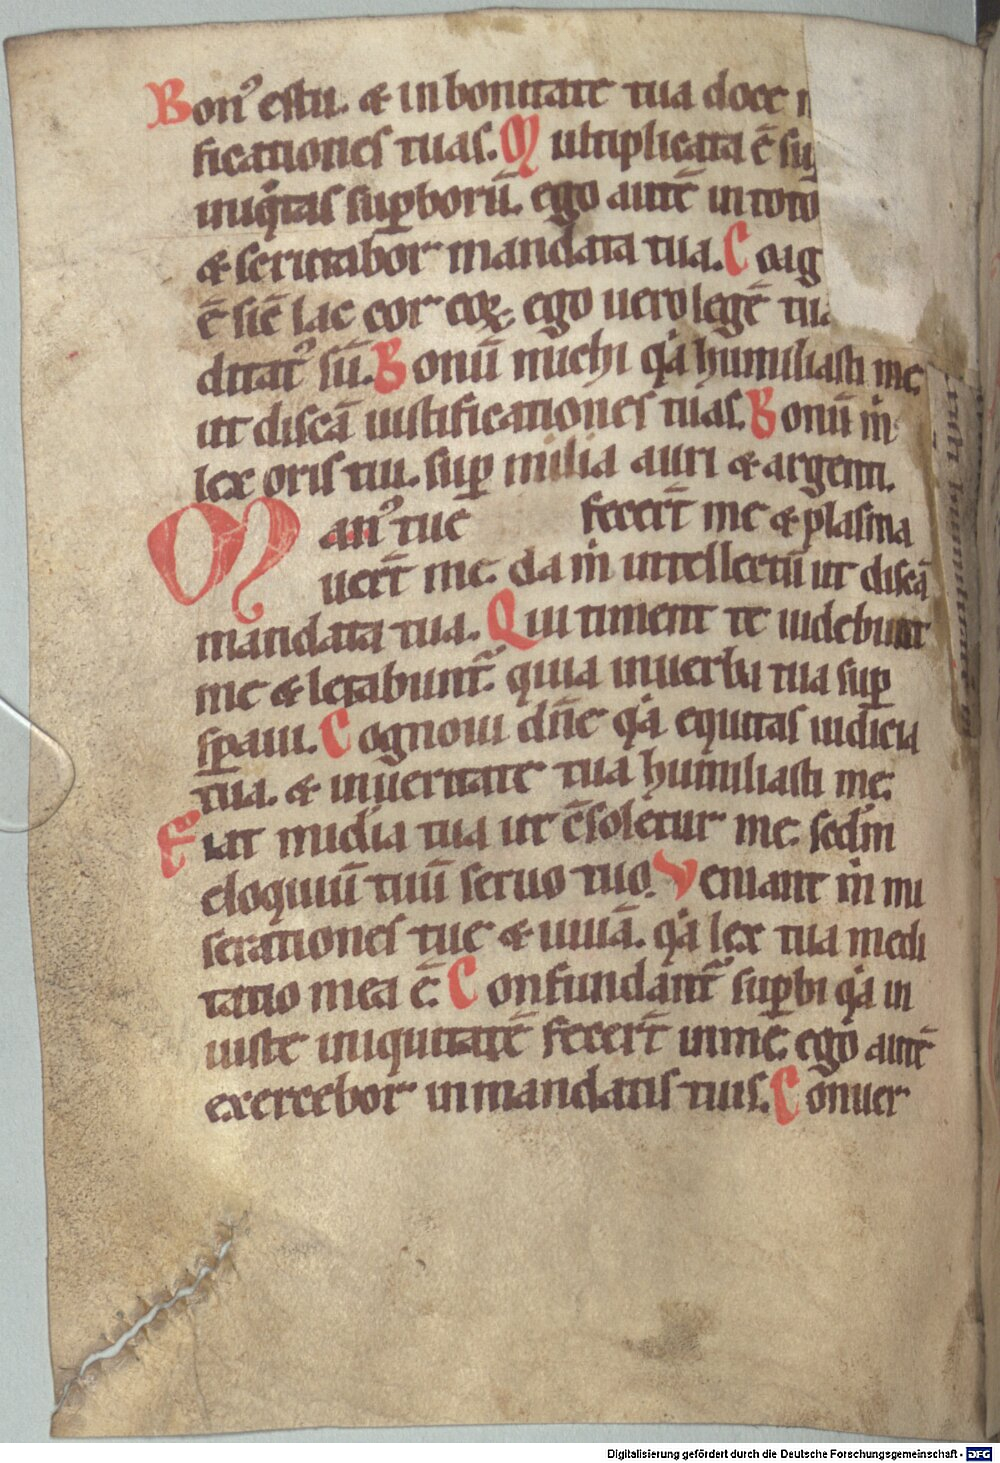 Bonꝰ es tu. & in bonitate tua doce
ficationes tuas. Multiplicata ē sup
iniq̇tas supborū. ego autē in toto
& scrutabor mandata tua. Coag
ē sic̄ lac cor eoꝝ. ego uero legē tua
ditatꝰ sū. Bonū michi q̇a humiliasti me
ut discā iustificationes tuas. Bonū ṁ
lex oris tui. sup milia auri & argenti.
Manꝰ tue fecert̄ me & plasma
uert̄ me. da ṁ intellectū ut discā
mandata tua. Qui timent te uidebunt
me & letabunt̃. quia in uerba tua sup
sperauı. Cognoui dn̄e q̇a equitas iudicia
tua. & in ueritate tua humiliasti me.
Fiat mia tua ut ɔ̄soletur me. sedm
eloquiū tuū seruo tuo. Veniant ṁ mi
serationes tue & uiuā. q̇a lex tua medi
tatio mea ē. Confundant̃ supbi q̇a in
iuste iniquitatē fecert̄ in me. ego autē
exercebor in mandatis tuis. Conuer
Digitalisierung gefördert durch die Deutsche Forschungsgemeinschaft - DFG